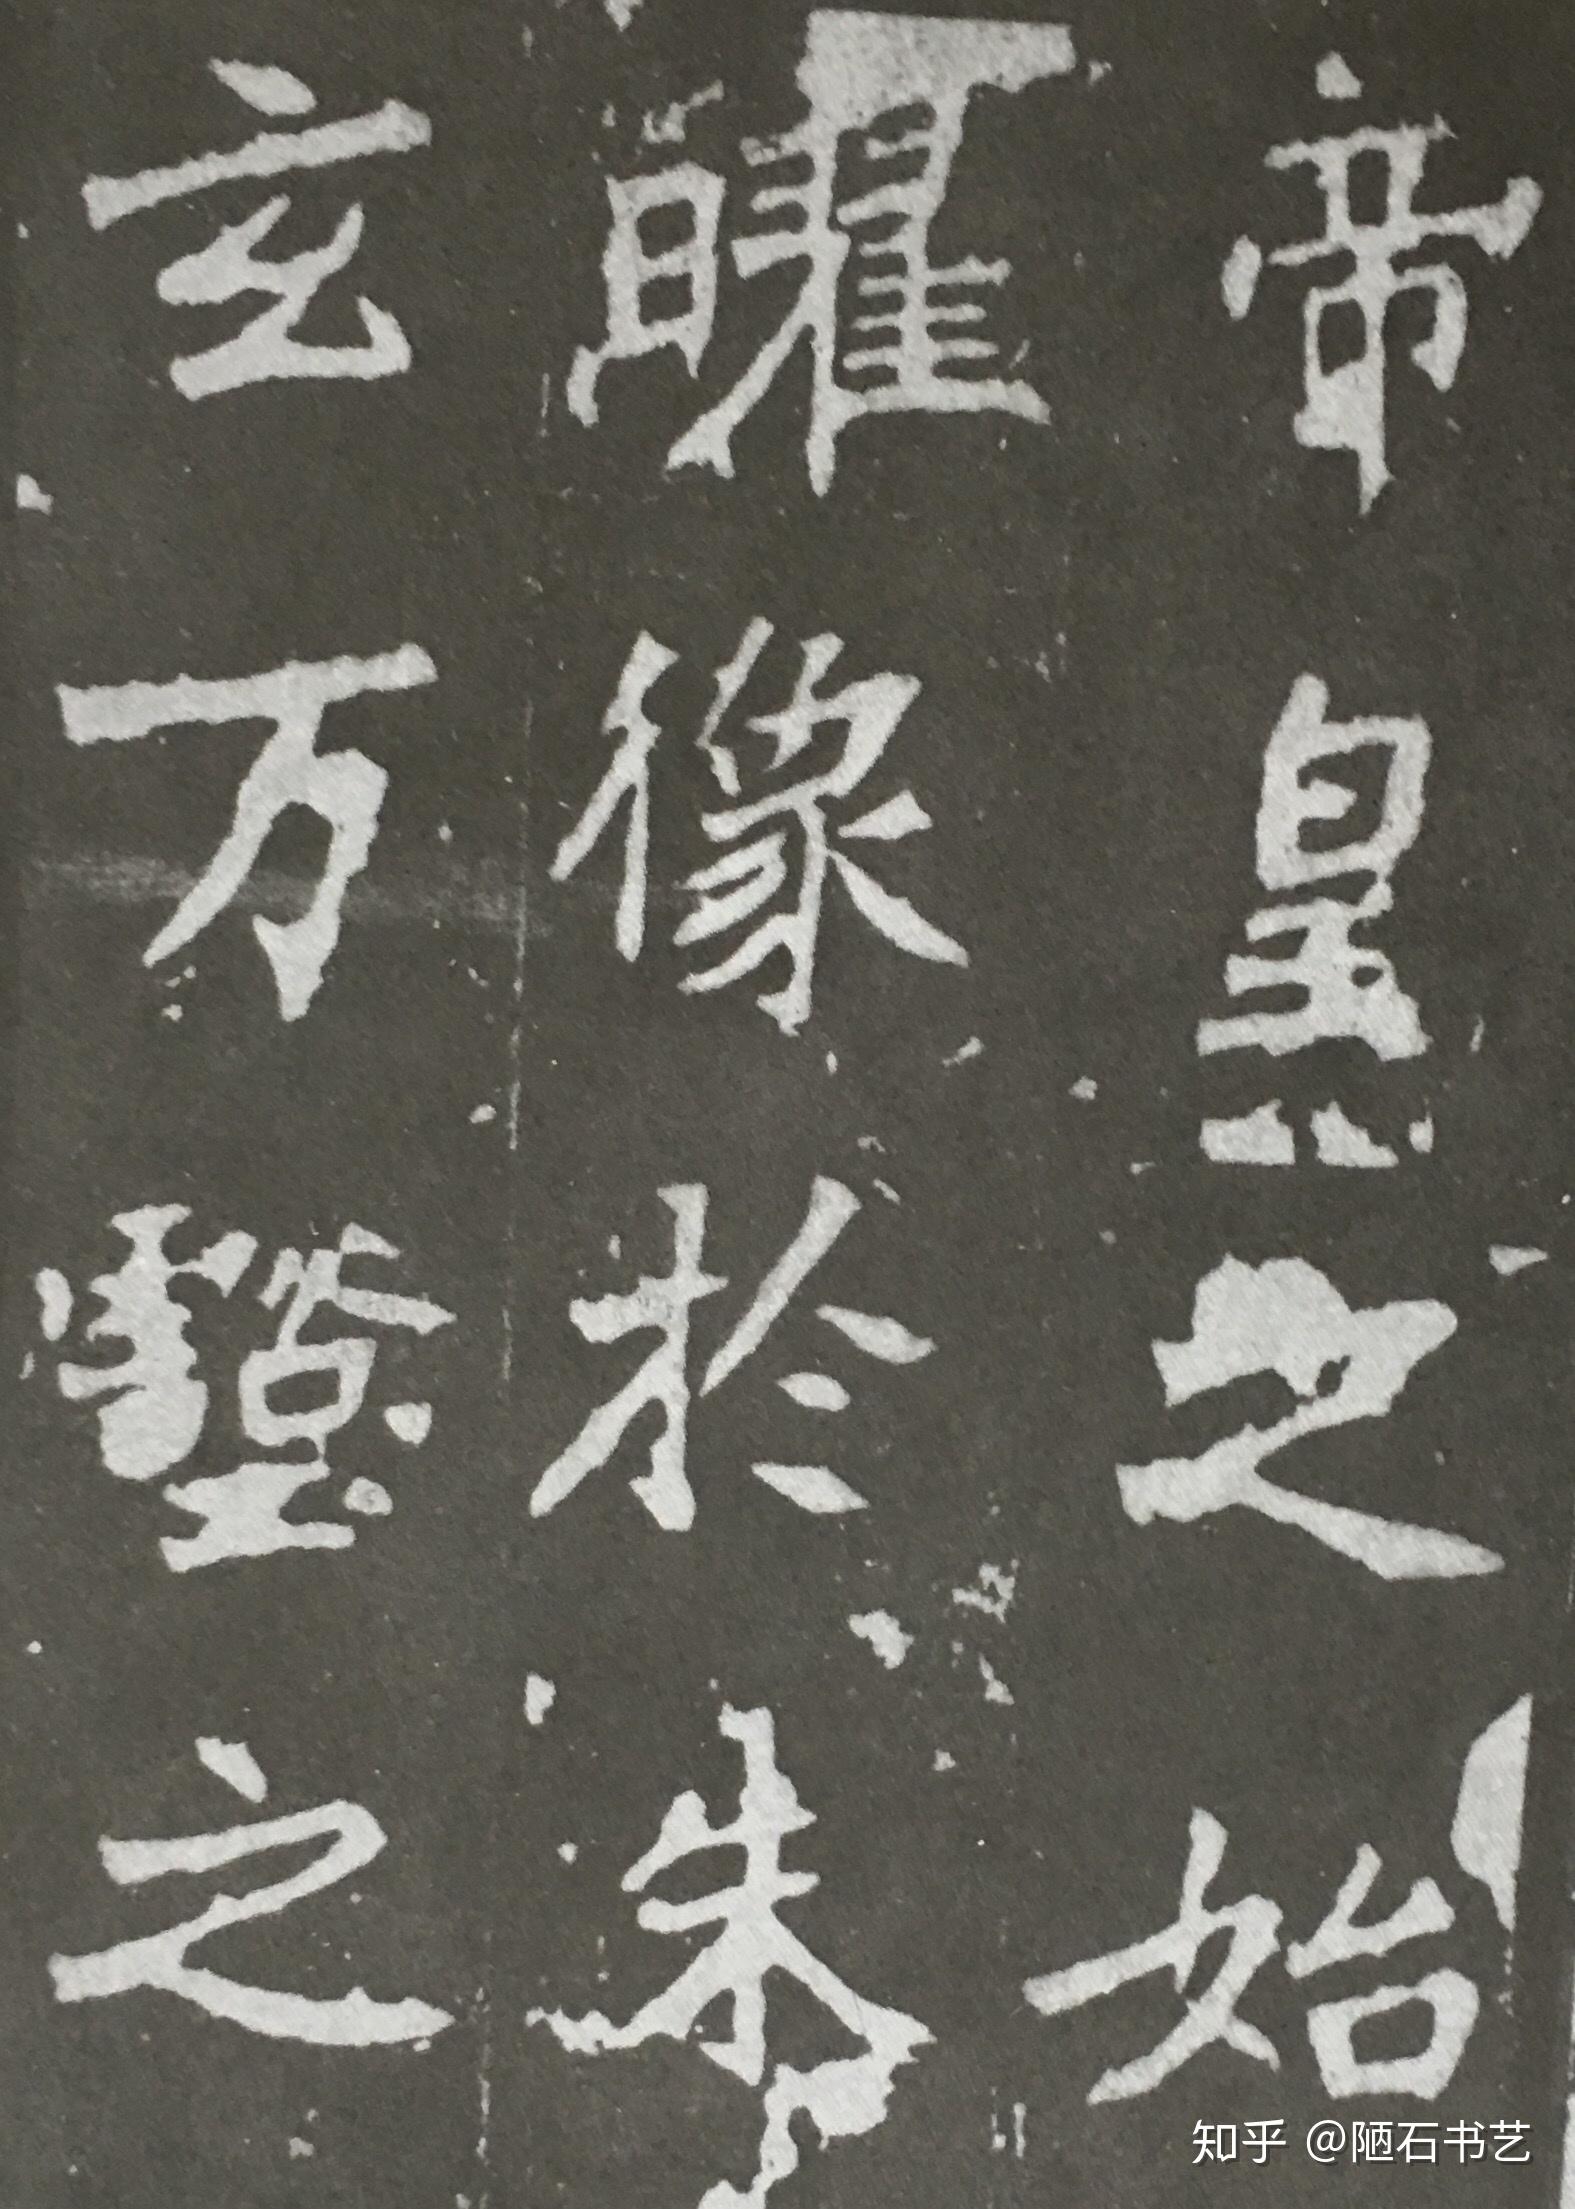 帝皇之始
曜像於朱
玄万壑之
知乎 @陋石书艺